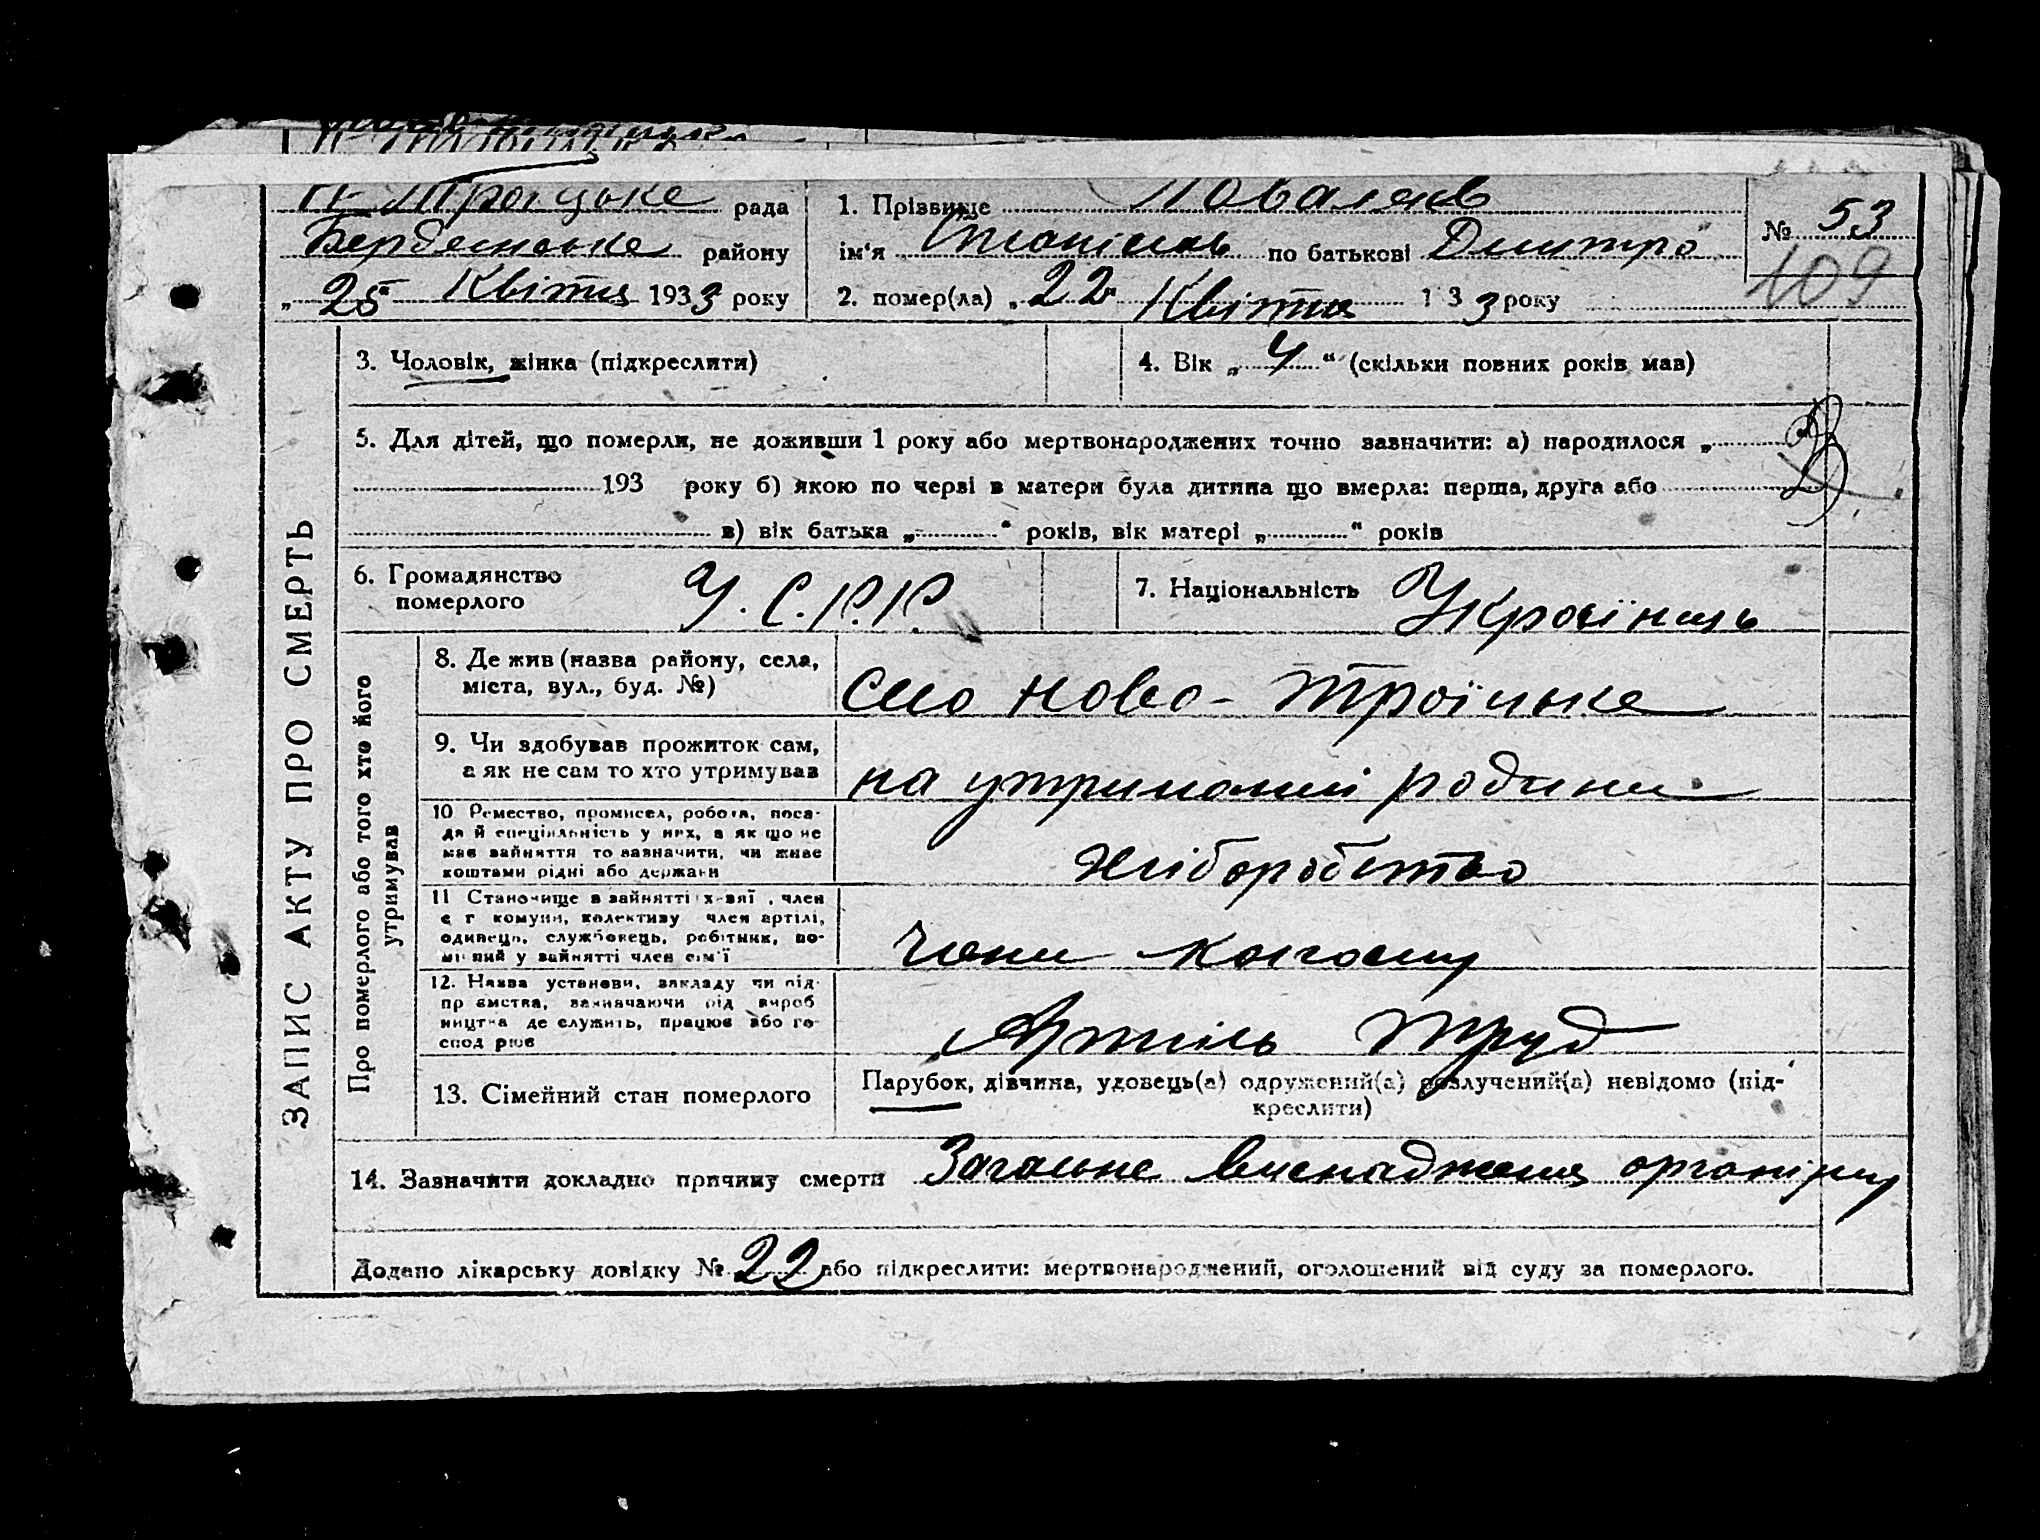 Н-Троїцьке рада
Бердянське району
„ 25 " Квітня 1933 року
1. Прізвище Ковальов
ім'я по батькові Дмитро
2. помер(ла) „ 22 " Квітня 1 3 3 року
№ 53
109
ЗАПИС АКТУ ПРО СМЕРТЬ
3. Чоловік, жінка (підкреслити)
4. Вік „ 4 " (скільки повних років мав)
5. Для дітей, що померли, не доживши 1 року або мертвонароджених точно зазначити: а) народилося „
193 року б) якою по черзі в матери була дитина що вмерла: перша, друга або
в) вік батька „ " років, вік матері „ " років
6. Громадянство
померлого
У.С.Р.Р.
7. Національність Українець
Про померлого або того хто його
утримував
8. Де жив (назва району, села,
міста, вул., буд. №)
село Ново-Троїцьке
9. Чи здобував прожиток сам,
а як не сам то хто утримував
на утриманні родини
10 Ремество, промисел, робота, поса-
да й спеціяльність у них, а як що не
мав зайняття то зазначити, чи живе
коштами рідні або держави
хліборобство
11 Становище в зайнятті , член
с г комуни, колективу член артілі,
одинець, службовець, робітник, по-
мічний у зайнятті член сім'ї
член колгоспу
12. Назва установи, закладу чи під-
пр ємства, зазначаючи рід вироб
ництва де служить, працює або го-
спод рює
Артіль Труд
13. Сімейний стан померлого
Парубок, дівчина, удовець(а) одружений(а) розлучений(а) невідомо (під-
креслити)
14. Зазначити докладно причину смерти Загальне виснаження організму
Додано лікарську довідку № 22 або підкреслити: мертвонароджений, оголошений від суду за померлого.